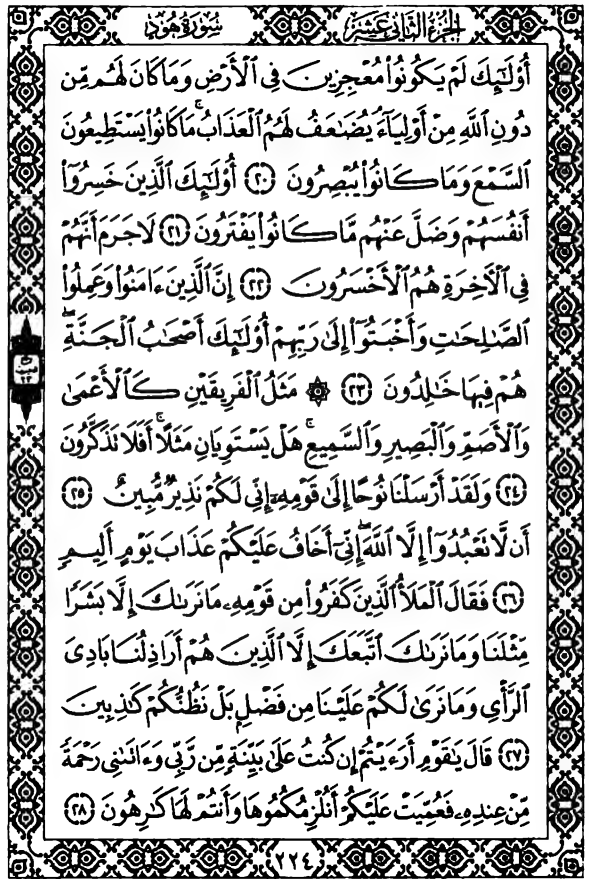 الجزء الثاني عشر
سورة هود
أُوْلَٰٓئِكَ لَمْ يَكُونُوا۟ مُعْجِزِينَ فِى ٱلْأَرْضِ وَمَا كَانَ لَهُم مِّن
دُونِ ٱللَّهِ مِنْ أَوْلِيَآءَ ۘ يُضَٰعَفُ لَهُمُ ٱلْعَذَابُ ۚ مَا كَانُوا۟ يَسْتَطِيعُونَ
ٱلسَّمْعَ وَمَا كَانُوا۟ يُبْصِرُونَ ﴿٢٠﴾ أُوْلَٰٓئِكَ ٱلَّذِينَ خَسِرُوٓا۟
أَنفُسَهُمْ وَضَلَّ عَنْهُم مَّا كَانُوا۟ يَفْتَرُونَ ﴿٢١﴾ لَا جَرَمَ أَنَّهُمْ
فِى ٱلْأَخِرَةِ هُمُ ٱلْأَخْسَرُونَ ﴿٢٢﴾ إِنَّ ٱلَّذِينَ ءَامَنُوا۟ وَعَمِلُوا۟
ٱلصَّٰلِحَٰتِ وَأَخْبَتُوٓا۟ إِلَىٰ رَبِّهِمْ أُوْلَٰٓئِكَ أَصْحَٰبُ ٱلْجَنَّةِ ۖ
هُمْ فِيهَا خَٰلِدُونَ ﴿٢٣﴾ ۞ مَثَلُ ٱلْفَرِيقَيْنِ كَٱلْأَعْمَىٰ
وَٱلْأَصَمِّ وَٱلْبَصِيرِ وَٱلسَّمِيعِ ۚ هَلْ يَسْتَوِيَانِ مَثَلًا ۚ أَفَلَا تَذَكَّرُونَ
﴿٢٤﴾ وَلَقَدْ أَرْسَلْنَا نُوحًا إِلَىٰ قَوْمِهِۦٓ إِنِّى لَكُمْ نَذِيرٌ مُّبِينٌ ﴿٢٥﴾
أَن لَّا تَعْبُدُوٓا۟ إِلَّا ٱللَّهَ ۖ إِنِّىٓ أَخَافُ عَلَيْكُمْ عَذَابَ يَوْمٍ أَلِيمٍ
﴿٢٦﴾ فَقَالَ ٱلْمَلَأُ ٱلَّذِينَ كَفَرُوا۟ مِن قَوْمِهِۦ مَا نَرَىٰكَ إِلَّا بَشَرًا
مِّثْلَنَا وَمَا نَرَىٰكَ ٱتَّبَعَكَ إِلَّا ٱلَّذِينَ هُمْ أَرَاذِلُنَا بَادِىَ
ٱلرَّأْىِ وَمَا نَرَىٰ لَكُمْ عَلَيْنَا مِن فَضْلٍۭ بَلْ نَظُنُّكُمْ كَٰذِبِينَ
﴿٢٧﴾ قَالَ يَٰقَوْمِ أَرَءَيْتُمْ إِن كُنتُ عَلَىٰ بَيِّنَةٍ مِّن رَّبِّى وَءَاتَىٰنِى رَحْمَةً
مِّنْ عِندِهِۦ فَعُمِّيَتْ عَلَيْكُمْ أَنُلْزِمُكُمُوهَا وَأَنتُمْ لَهَا كَٰرِهُونَ ﴿٢٨﴾
٢٢٤